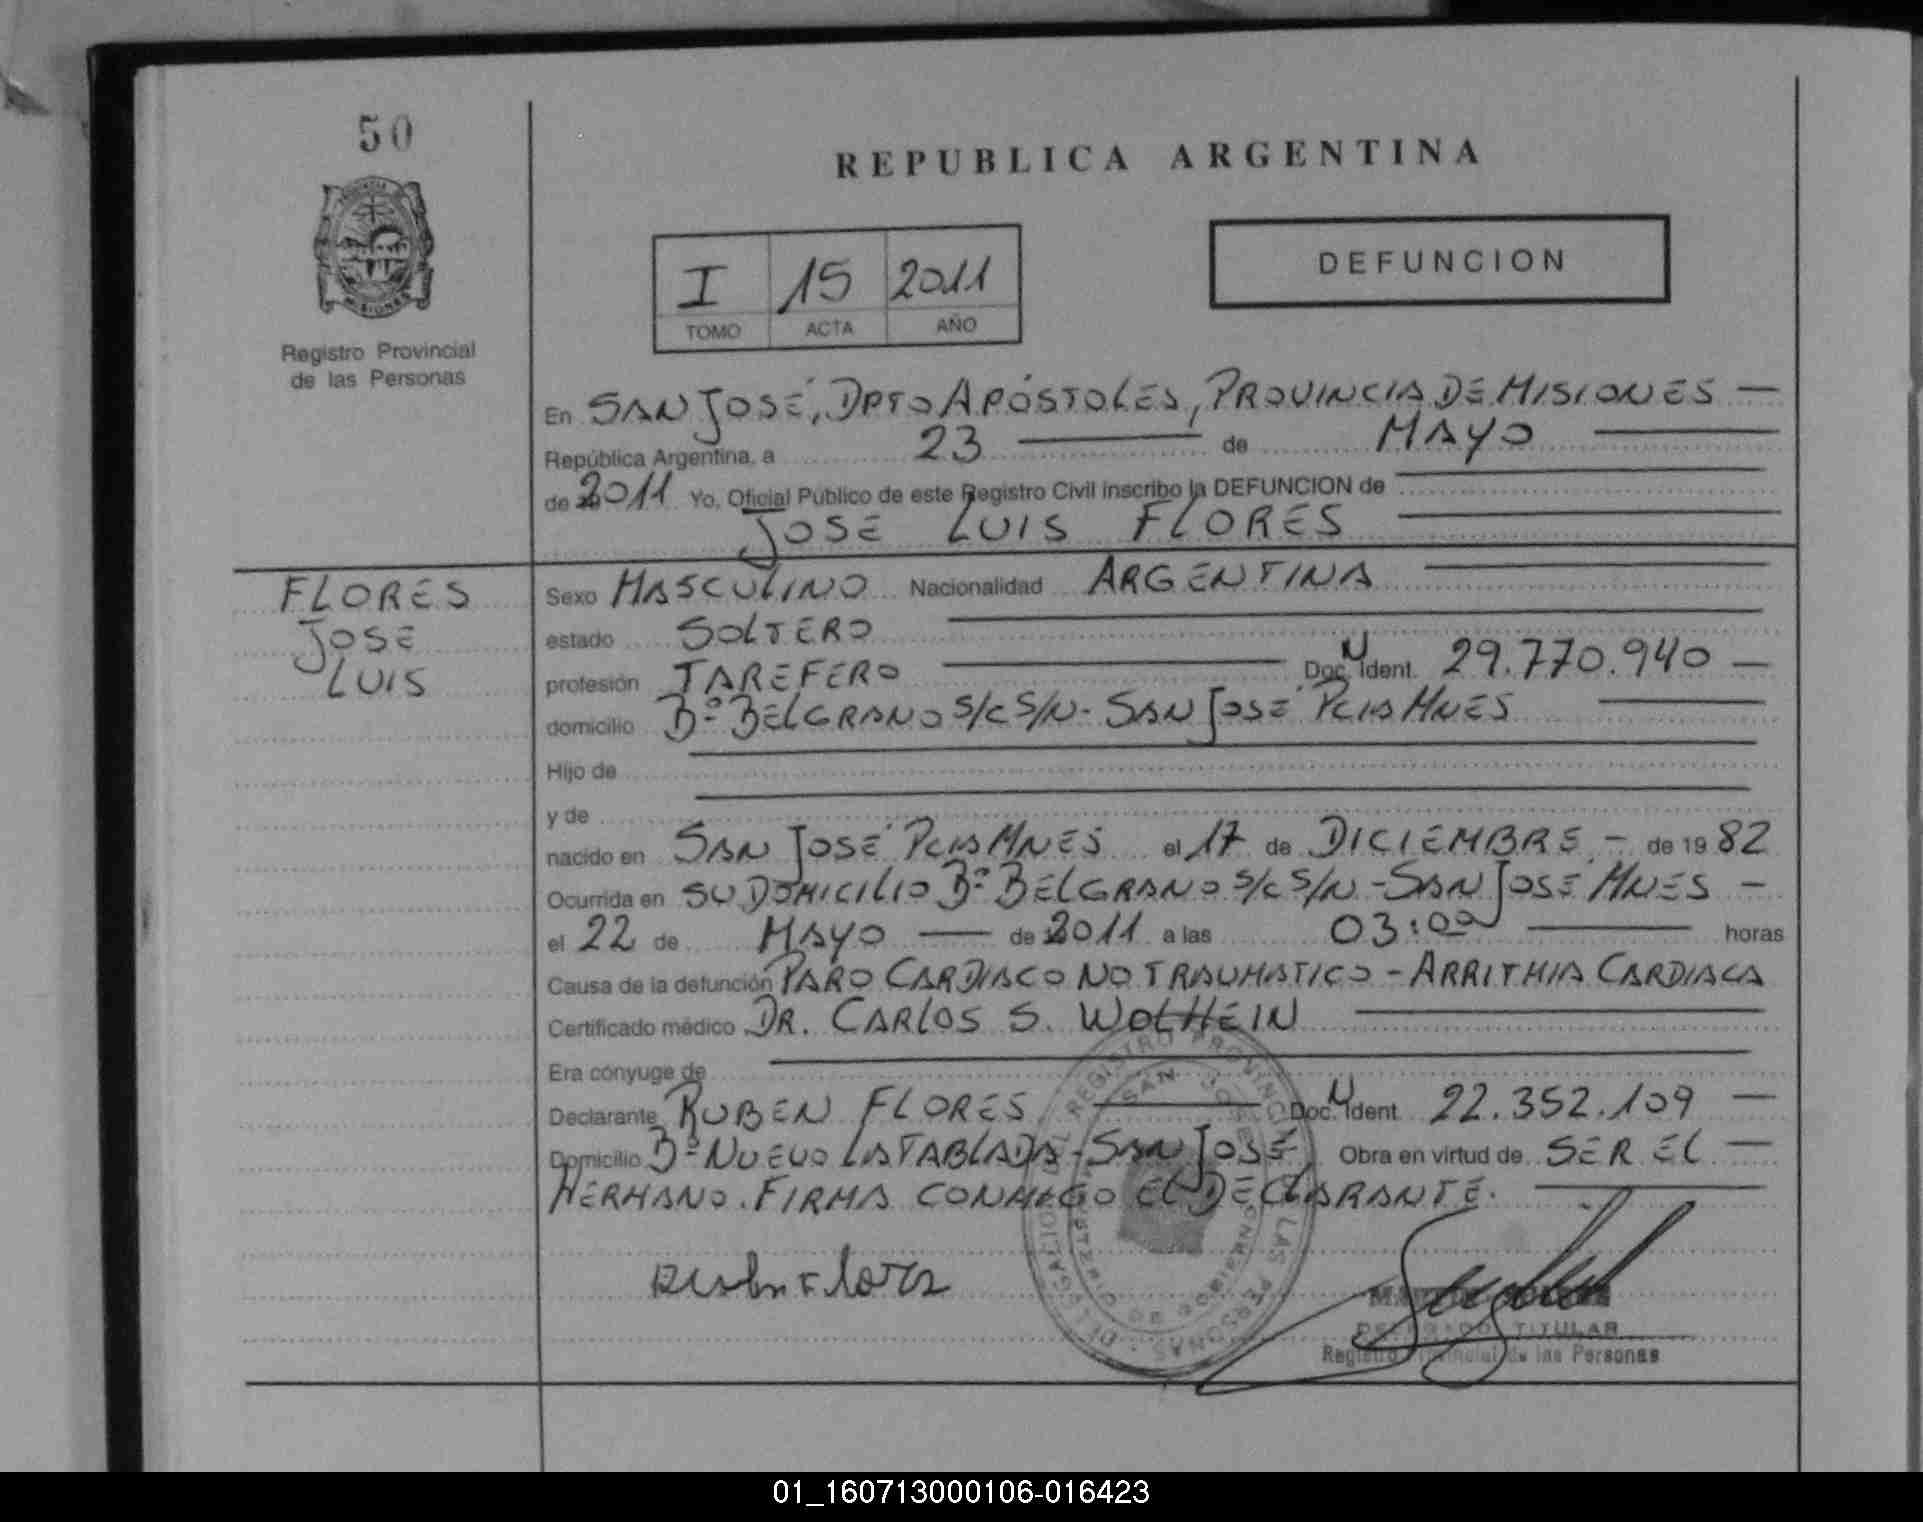 50
REPUBLICA ARGENTINA
MISIONES
Registro Provincial
de las Personas
I 15 2011
TOMO ACTA AÑO
DEFUNCION
En SAN JOSÉ, DPTO APÓSTOLES, PROVINCIA DE MISIONES —
República Argentina, a 23 — de MAYO —
de 2011 Yo, Oficial Público de este Registro Civil inscribo la DEFUNCION de
JOSE LUIS FLORES
FLORES
JOSE
LUIS
Sexo MASCULINO Nacionalidad ARGENTINA
estado SOLTERO
profesión TAREFERO Doc. N Ident. 29.770.940 —
domicilio Bº BELGRANO S/C S/N - SAN JOSÉ PCIA MNES
Hijo de
y de
nacido en SAN JOSÉ PCIA MNES el 17 de DICIEMBRE - de 1982
Ocurrida en SU DOMICILIO Bº BELGRANO S/C S/N - SAN JOSÉ MNES —
el 22 de MAYO — de 2011 a las 03:00 — horas
Causa de la defunción PARO CARDIACO NO TRAUMATICO - ARRITMIA CARDIACA
Certificado médico DR. CARLOS S. WOLHEIN
Era cónyuge de
Declarante RUBEN FLORES — Doc. N Ident. 22.352.109 —
Domicilio Bº NUEVO LA TABLADA - SAN JOSÉ Obra en virtud de SER EL —
HERMANO. FIRMA CONMIGO EL DECLARANTE.
Ruben Flores
DELEGADO TITULAR
Registro Provincial de las Personas
01_160713000106-016423